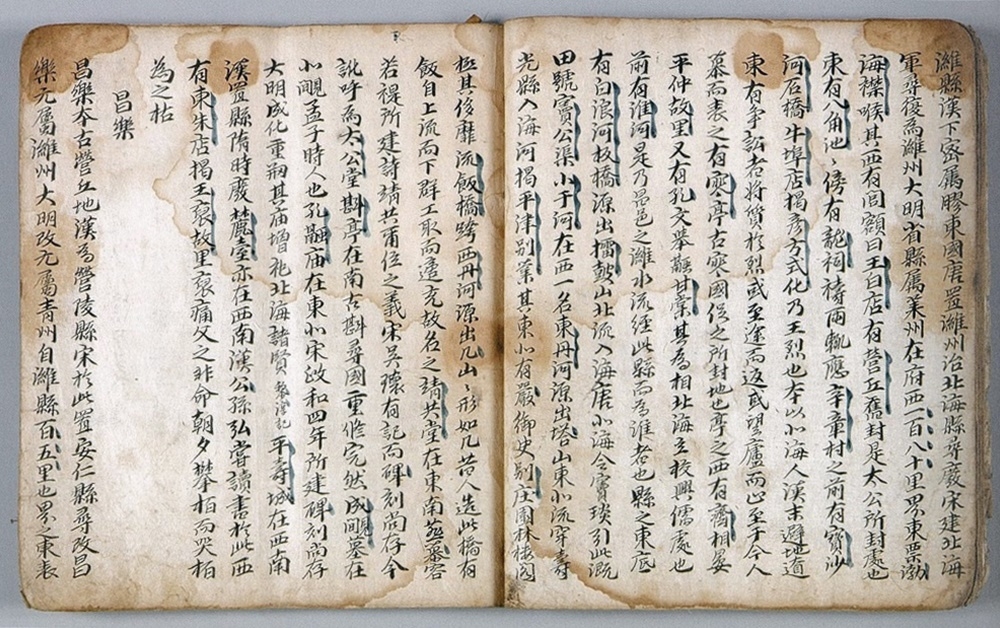 濰縣漢下密屬膠東國唐置濰州治北海縣尋廢宋建北海
軍尋復為濰州大明省縣屬萊州在府西一百八十里界東票渤
海襟喉其西有閭額曰王白店有營丘舊封是太公所封處也
東有八角池〻傍有龍祠禱雨輒應辛章村之前有寶沙
河石橋牛埠店揭彦方式化乃王烈也本以小海人漢末避地遼
東有爭訟者將質於烈或至途而返或望廬而止至于今人
慕而表之有寒亭古寒國促之所封地也亭之西有齊相晏
平仲故里又有孔文舉融甘棠其為相北海立校興儒處也
前有淮河是乃昌邑之濰水流經此縣而為淮者也縣之東底
有白浪河板橋源出擂鼓山北流入海唐小海令竇琰引此溉
田號竇公渠小于河在西一名東丹河源出塔山東小流穿壽
光縣入海河揭平津別業其東小有嚴御史別庄園林樓閣
極其侈靡流飯橋跨西丹河源出几山〻形如几昔人造此橋有
飯自上流而下群工取而遣充故名之靖共堂在東南燕慕容
若禔所建詩靖共爾位之義宋吳禳有記而碑刻尚存今
訛呼為太公堂斟亭在南古斟尋國重修宛然成覸墓在
小覸孟子時人也孔融庙在東小宋政和四年所建碑刻尚存
大明成化重剏其庙增祀北海諸賢 平壽城在西南
漢置縣隋時廢麓臺亦在西南漢公孫弘嘗讀書於此西
有東朱店揭王裒故里裒痛父之非命朝夕攀栢而哭栢
為之枯
昌樂
昌樂本古營丘地漢為營陵縣宋於此置安仁縣尋改昌
樂元屬濰州大明改元屬青州自濰縣百五里也界之東表